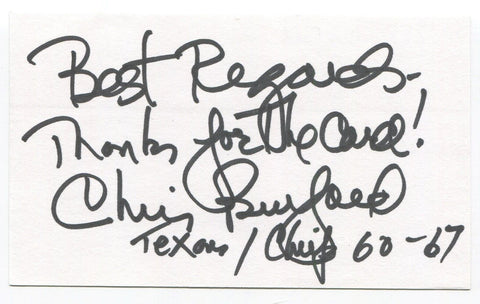 Best Regards-
Thanks for the Card!
Chris Burford
Texans / Chiefs 60-67